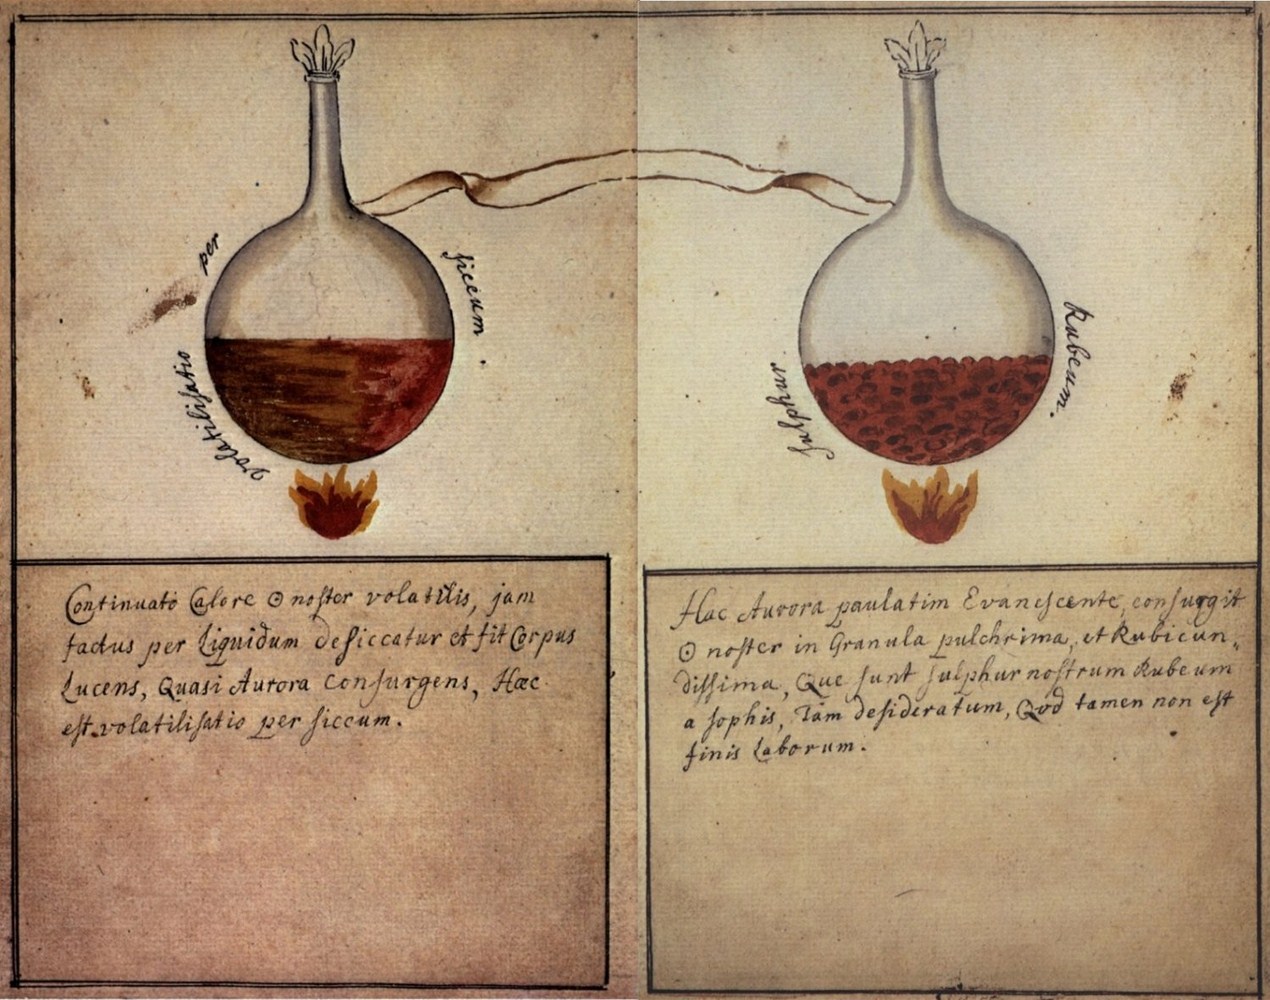 volatilisatio per siccum.
Continuato Calore ☉ noster volatilis, jam
factus per Liquidum desiccatur et fit Corpus
Lucens, Quasi Aurora Consurgens, Hæc
est volatilisatio per siccum.
Sulphur Rubeum.
Hac Aurora paulatim Evanescente, consurgit
☉ noster in Granula pulchrima, et Rubicun„
dissima, Que sunt sulphur nostrum Rubeum
a sophis, Tam desideratum, Qod tamen non est
finis Laborum.